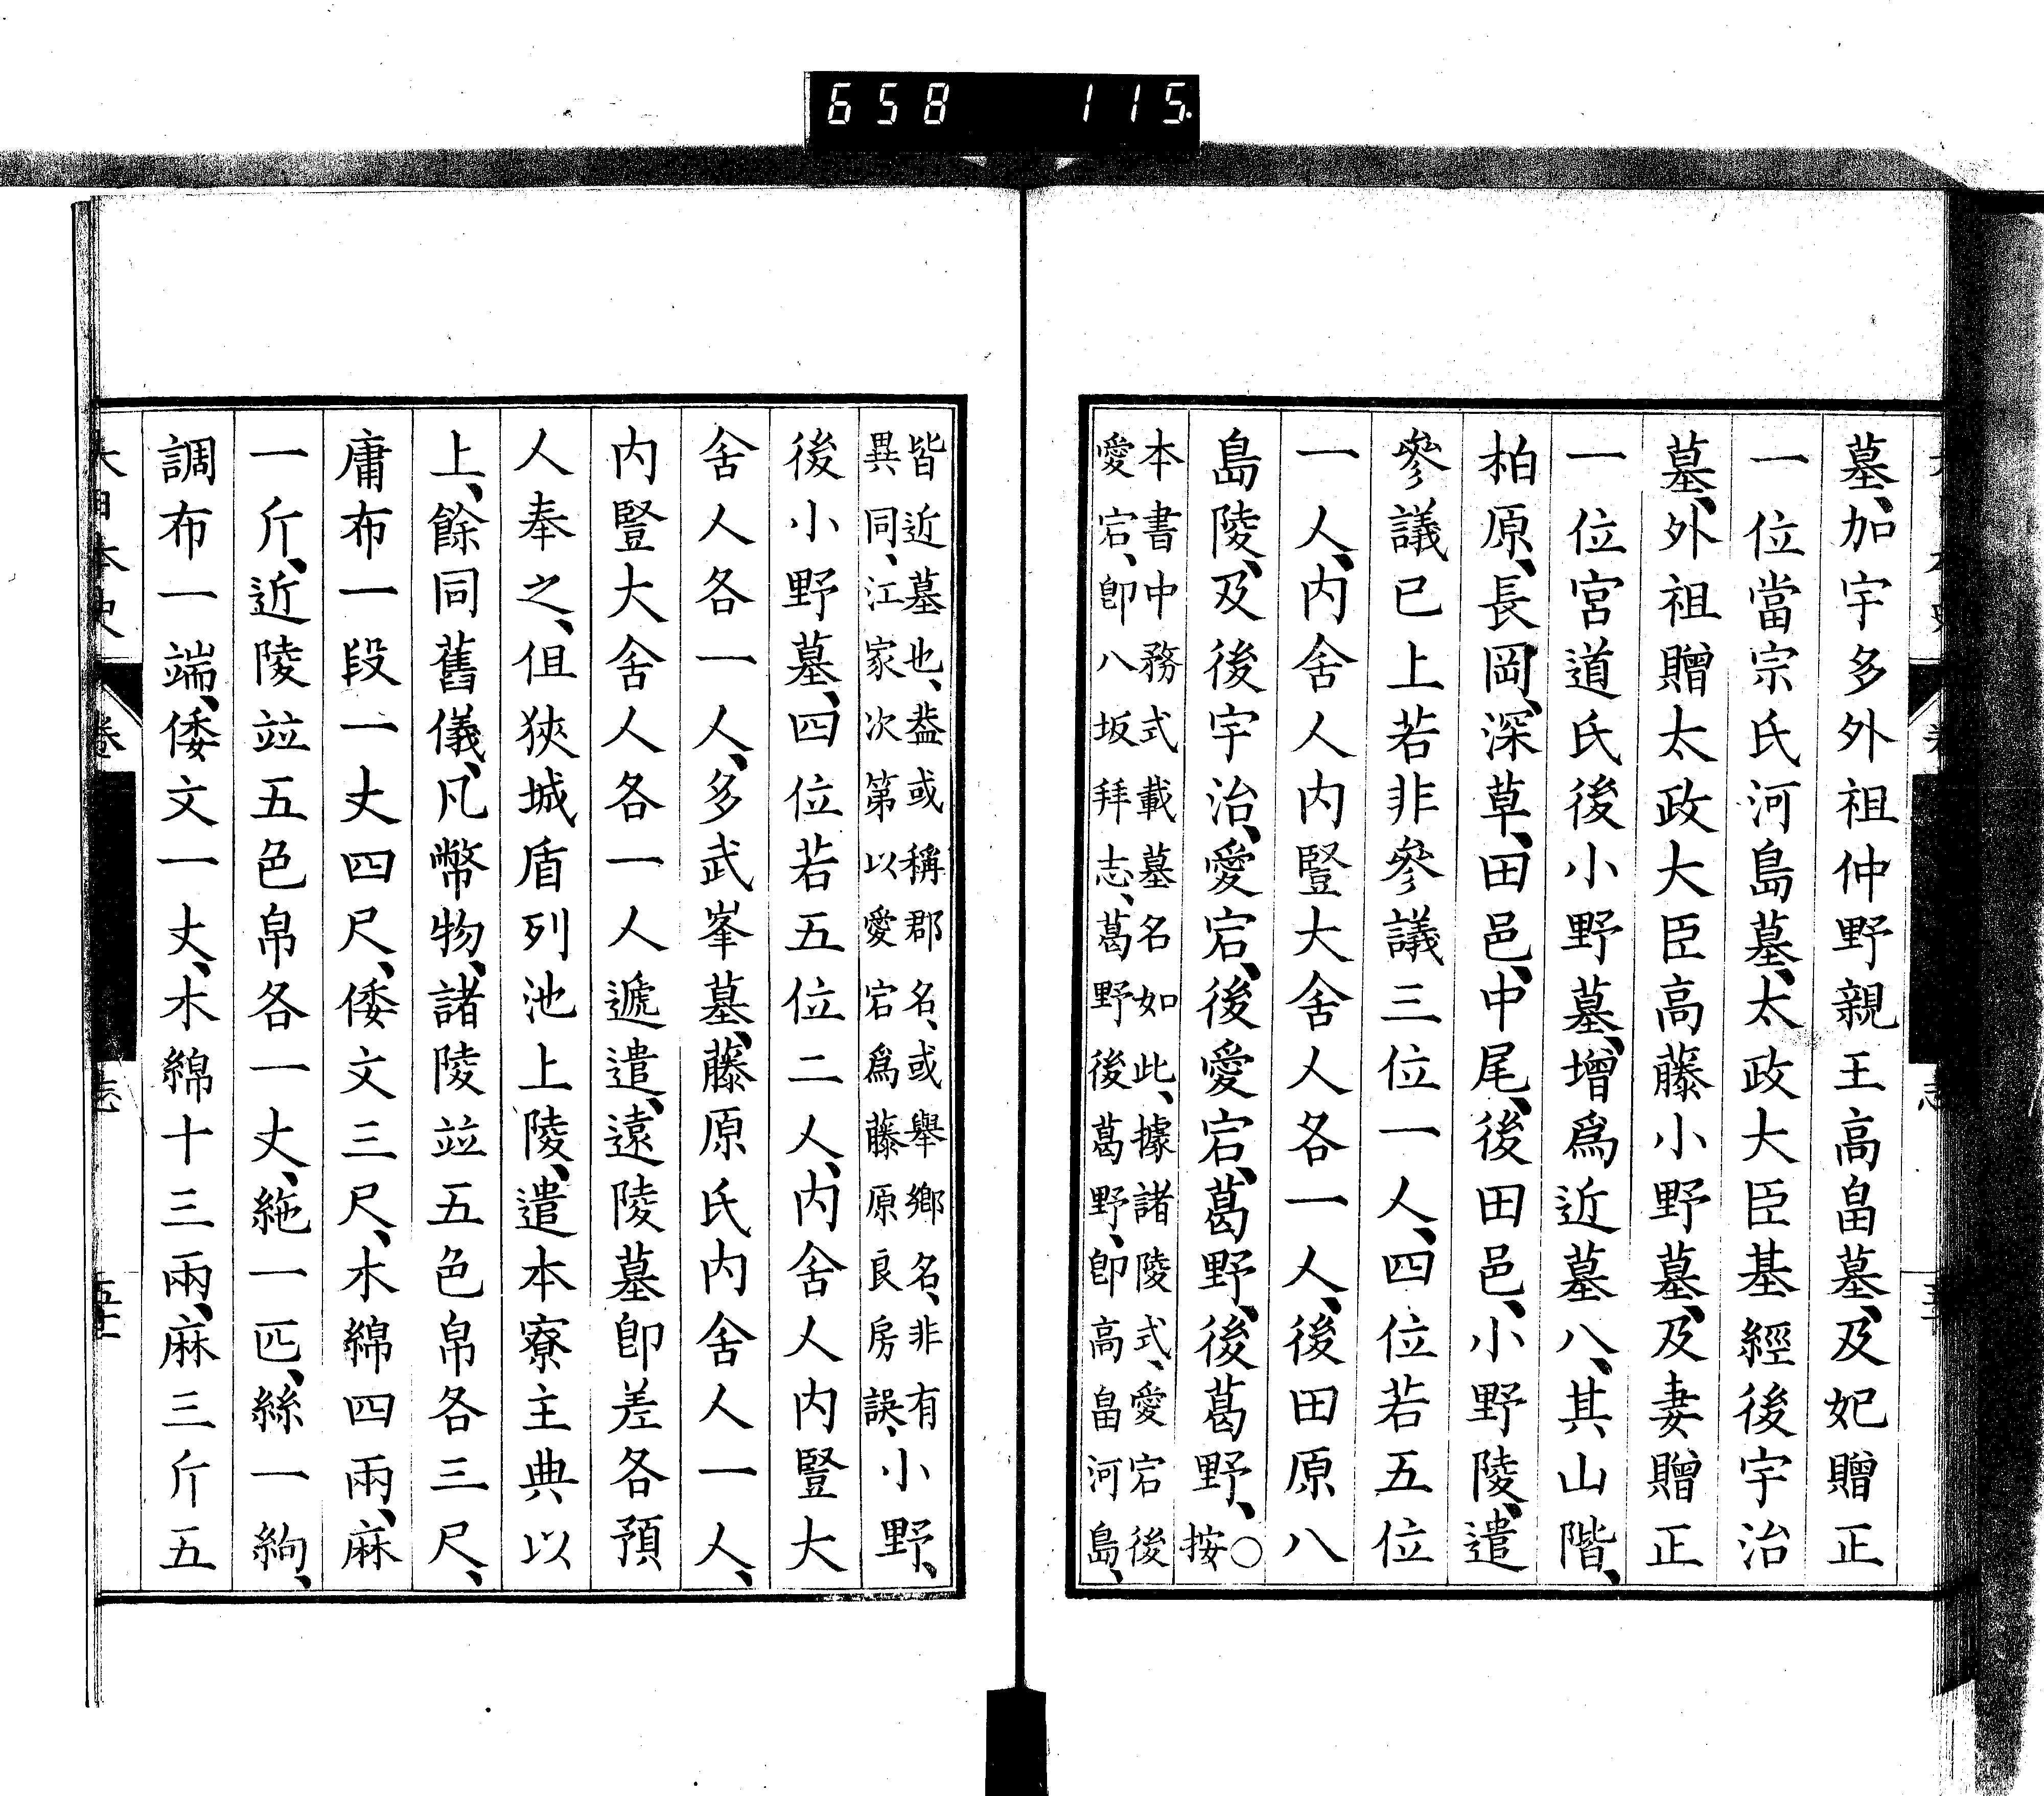 658 115.
墓、加宇多外祖仲野親王高畠墓、及妃贈正
一位當宗氏河島墓、太政大臣基經後宇治
墓、外祖贈太政大臣高藤小野墓、及妻贈正
一位宮道氏後小野墓、增爲近墓八、其山階、
柏原、長岡、深草、田邑、中尾、後田邑、小野陵、遣
參議已上若非參議三位一人、四位若五位
一人、内舍人内豎大舍人各一人、後田原八
島陵、及後宇治、愛宕、後愛宕、葛野、後葛野、○按
本書中務式載墓名如此、據諸陵式、愛宕後
愛宕、卽八坂拜志、葛野後葛野、卽高畠河島、
皆近墓也、葢或稱郡名、或舉鄉名、非有
異同、江家次第以愛宕爲藤原良房誤、小野、
後小野墓、四位若五位二人、内舍人内豎大
舍人各一人、多武峯墓、藤原氏内舍人一人、
内豎大舍人各一人遞遣、遠陵墓卽差各預
人奉之、但狹城盾列池上陵、遣本寮主典以
上、餘同舊儀、凡幣物、諸陵竝五色帛各三尺、
庸布一段一丈四尺、倭文三尺、木綿四兩、麻
一斤、近陵竝五色帛各一丈、絁一匹、絲一絇、
調布一端、倭文一丈、木綿十三兩、麻三斤五